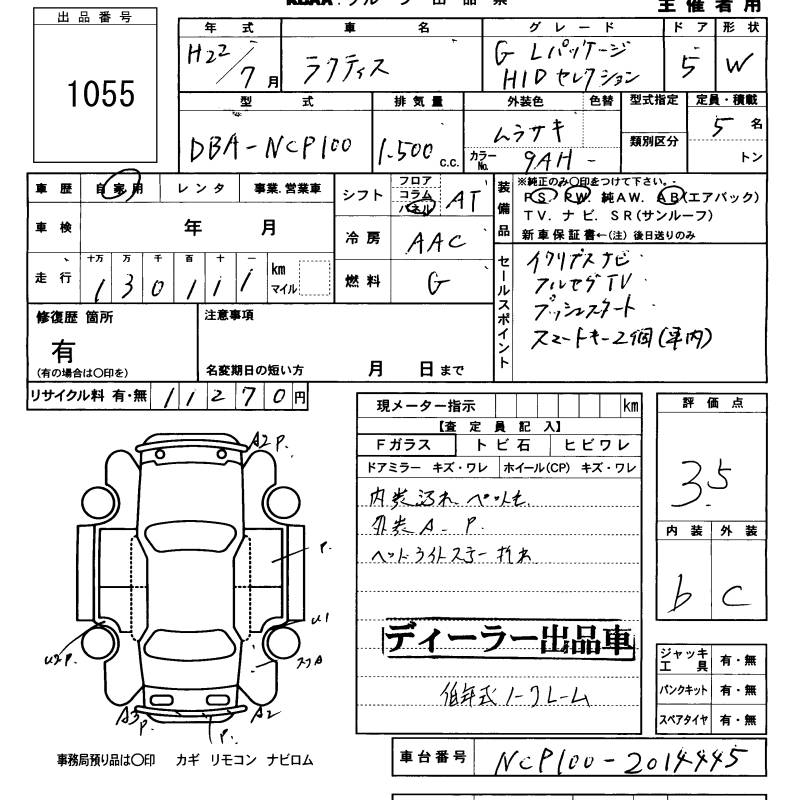 主催者用
出品番号
1055
年式 車名 グレード ドア 形状
H22/7月 ラクティス G Lパッケージ HIDセレクション 5 W
型式 排気量 外装色 色替 型式指定 定員・積載
DBA-NCP100 1.500c.c. ムラサキ 5名
カラーNo. 9AH - 類別区分 トン
車歴 自家用 レンタ 事業.営業車
車検 年 月
走行 十万 万 千 百 十 一 km マイル
130111
シフト フロア コラム パネル AT
冷房 AAC
燃料 G
装備品
※純正のみ〇印をつけて下さい。
PS. PW. 純AW. AB(エアバック)
TV. ナビ. SR(サンルーフ)
新車保証書←(注)後日送りのみ
セールスポイント
イクリプスナビ
フルセグTV
プッシュスタート
スマートキー2個(車内)
修復歴 箇所
有
(有の場合は〇印を)
注意事項
名変期日の短い方 月 日まで
リサイクル料 有・無 11270円
現メーター指示 km
【査定員記入】
Fガラス トビ石 ヒビワレ
ドアミラー キズ・ワレ ホイール(CP) キズ・ワレ
内装汚れ ペットも
外装A. P.
ヘッドライトステー折れ
ディーラー出品車
低年式ノークレーム
評価点
3.5
内装 外装
b C
ジャッキ工具 有・無
パンクキット 有・無
スペアタイヤ 有・無
A2 P.
P.
U1
U2 P.
スリA
A3 P. A2
P.
事務局預り品は〇印 カギ リモコン ナビロム
車台番号 NCP100-2014445